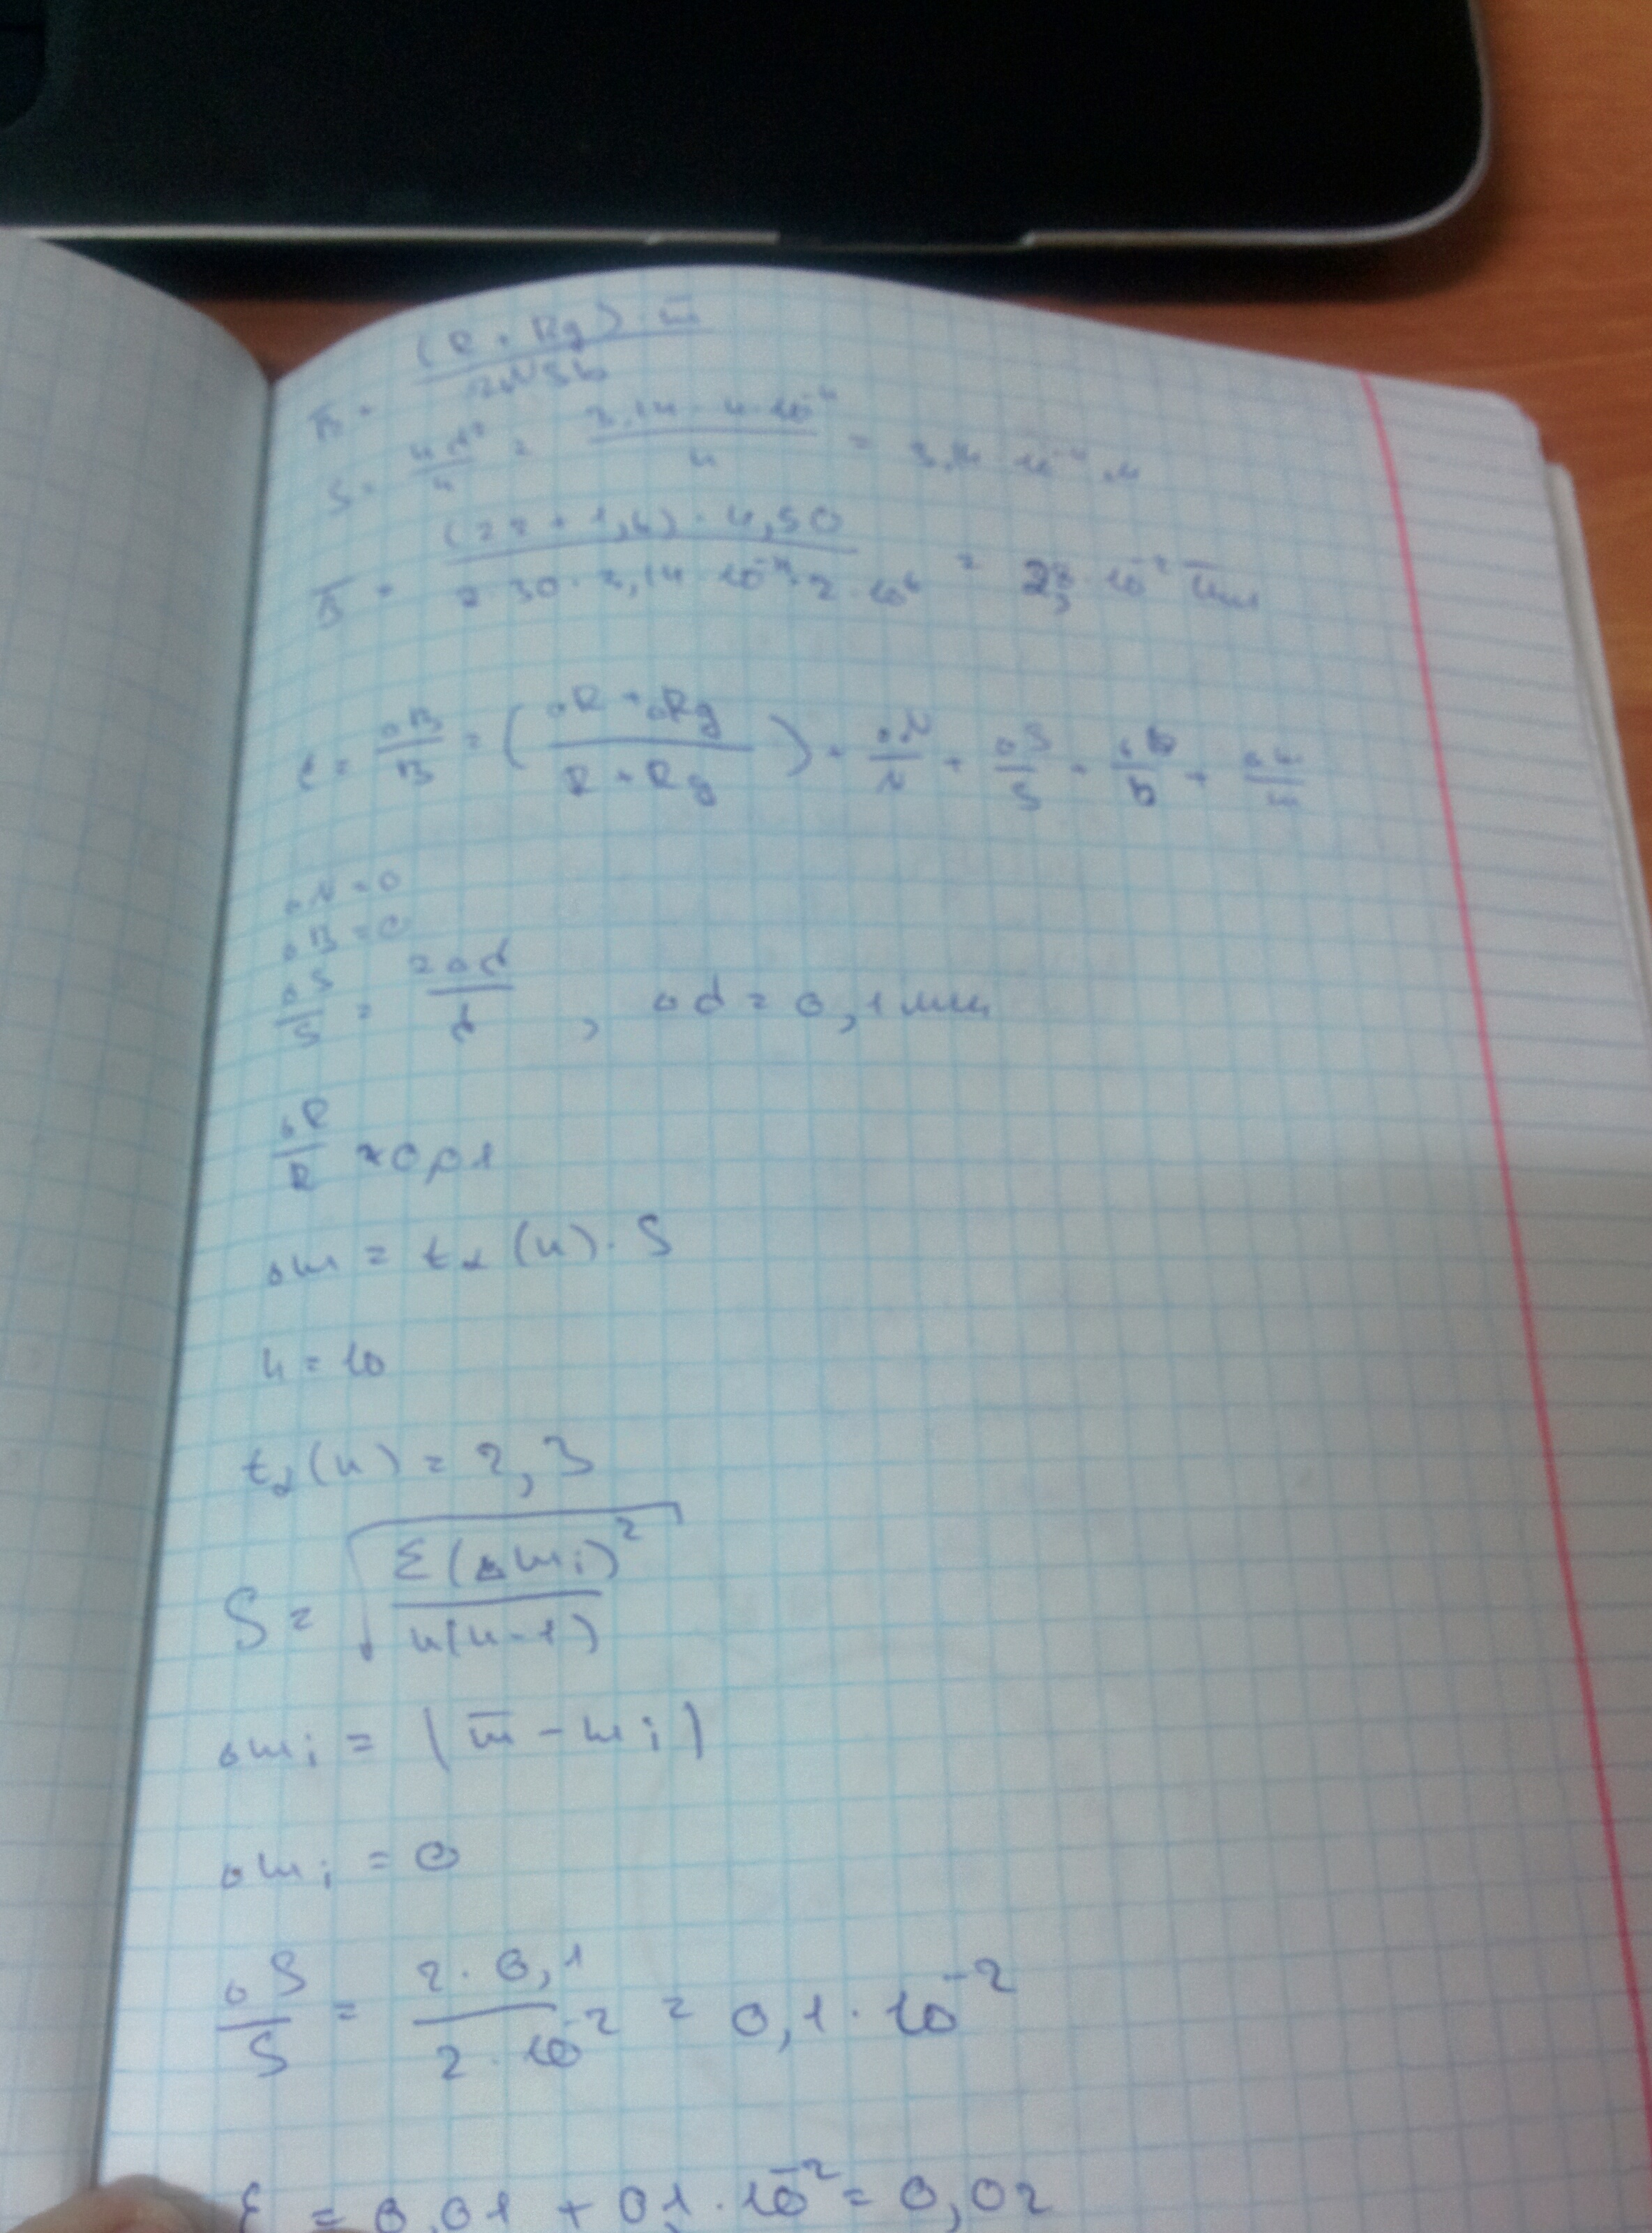 B̄ = (R + Rg) · m̄ / 2NSb
S = πd² / 4 = 3,14 · 4 · 10⁻⁴ / 4 = 3,14 · 10⁻⁴ м
B̄ = · 4,50 / 2 · 30 · 3,14 · 10⁻⁴ · 2 · 10⁶ = · 10⁻² Тл
ε = ΔB / B = (ΔR + ΔRg / R + Rg) + ΔN / N + ΔS / S + Δb / b + Δm / m
ΔN = 0
ΔB = 0
ΔS / S = 2Δd / d , Δd = 0,1 мм
ΔR / R ≈ 0,01
Δm = tα(n) · S
n = 10
tα(n) = 2,3
S = √(Σ(Δmi)² / n(n-1))
Δmi = |m̄ - mi|
Δmi = 0
ΔS / S = 2 · 0,1 / 2 · 10⁻² = 0,1 · 10⁻²
ε = 0,01 + 0,1 · 10⁻² = 0,02